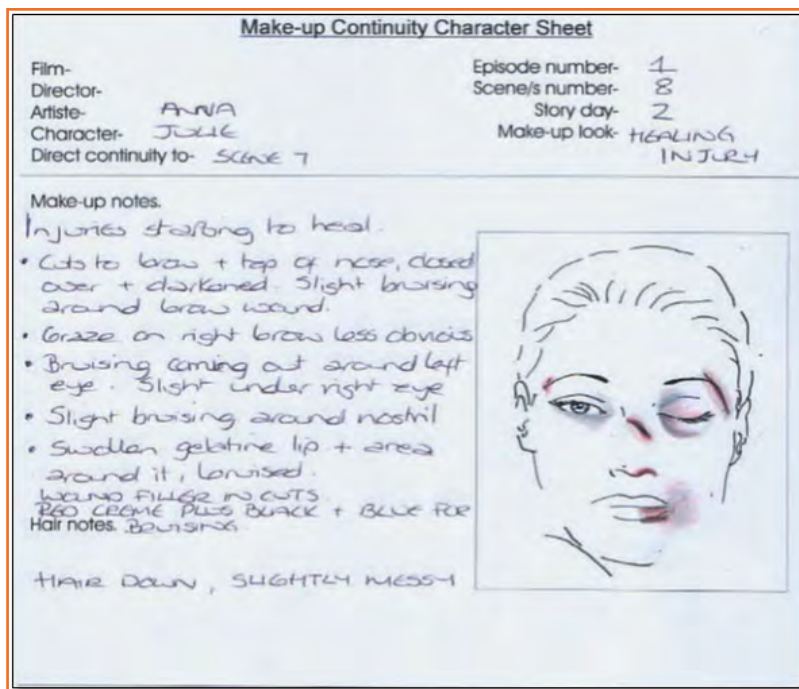 Make-up Continuity Character Sheet
Film-
Director-
Artiste- ANNA
Character- JULIE
Direct continuity to- SCENE 7
Episode number- 1
Scene/s number- 8
Story day- 2
Make-up look- HEALING
INJURY
Make-up notes.
Injuries starting to heal.
• Cuts to brow + top of nose, closed
over + darkened. Slight bruising
around brow wound.
• Graze on right brow less obvious
• Bruising coming out around left
eye. Slight under right eye
• Slight bruising around nostril
• Swollen gelatine lip + area
around it, bruised.
WOUND FILLER IN CUTS
RED CREME PLUS BLACK + BLUE FOR
Hair notes. BRUISING.
HAIR DOWN, SLIGHTLY MESSY